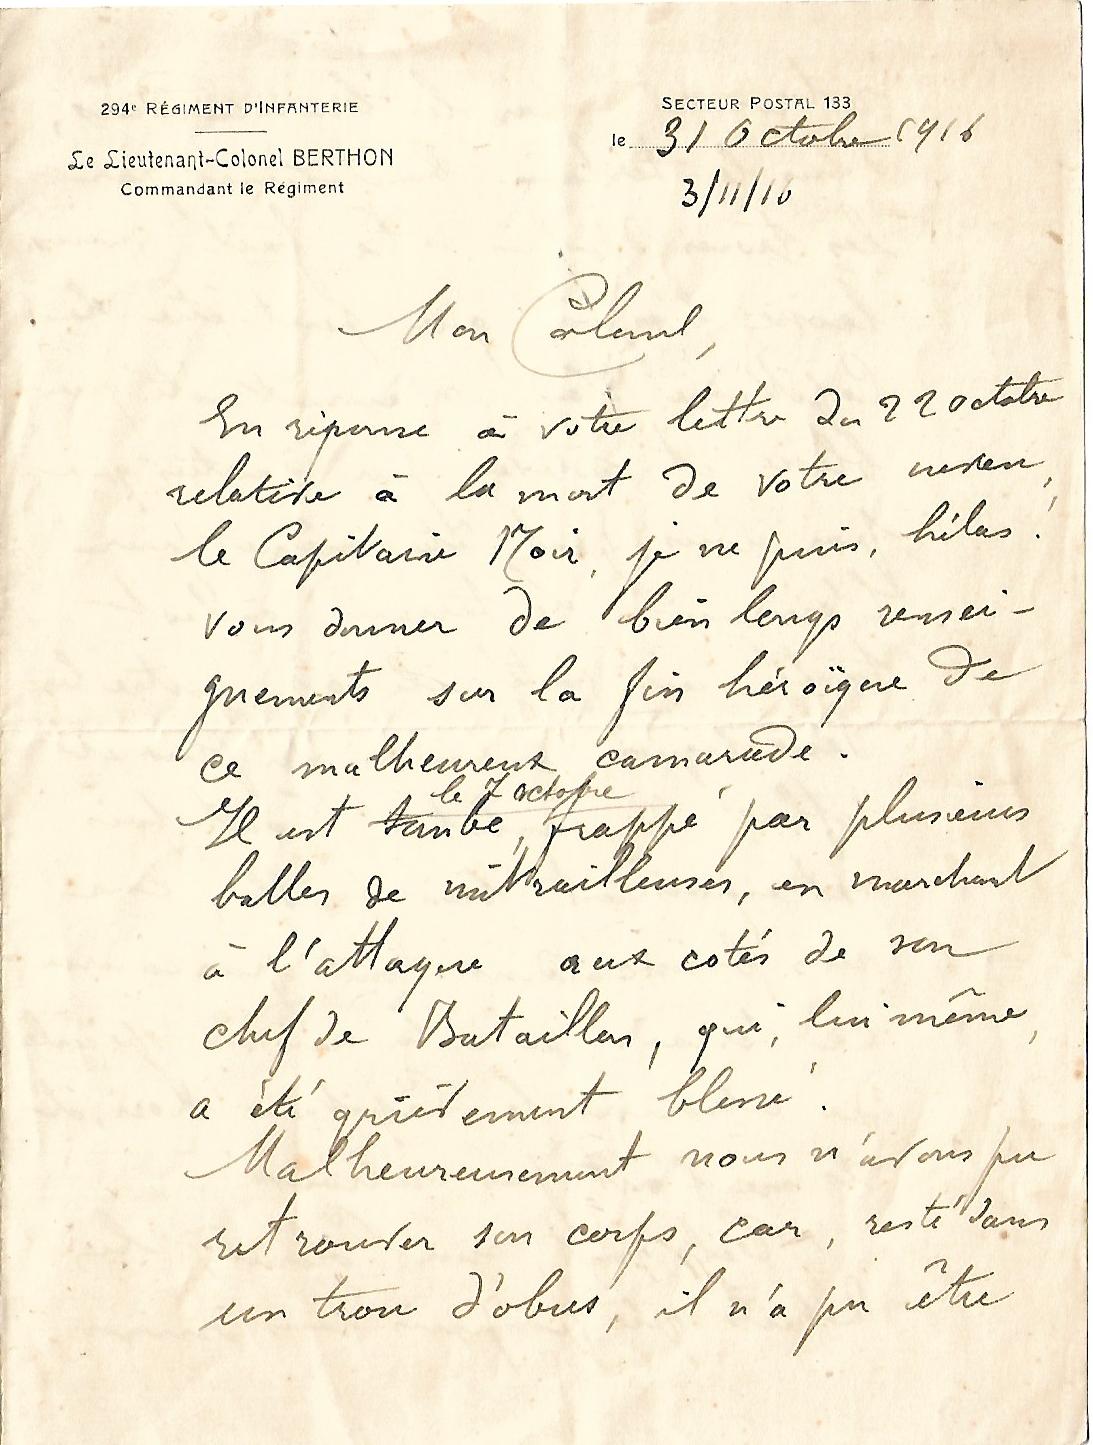 294e RÉGIMENT D'INFANTERIE
Le Lieutenant-Colonel BERTHON
Commandant le Régiment
SECTEUR POSTAL 133
le 31 Octobre 1916
3/11/16
Mon Colonel,
En réponse à votre lettre du 22 octobre
relative à la mort de votre neveu,
le Capitaine Noir, je ne puis, hélas !
vous donner de bien longs rensei-
gnements sur la fin héroïque de
ce malheureux camarade.
le 7 octobre
Il est tombé, frappé par plusieurs
balles de mitrailleuses, en marchant
à l'attaque aux cotés de son
chef de Bataillon, qui, lui même,
a été grièvement blessé.
Malheureusement nous n'avons pu
retrouver son corps, car, resté dans
un trou d'obus, il n'a pu être